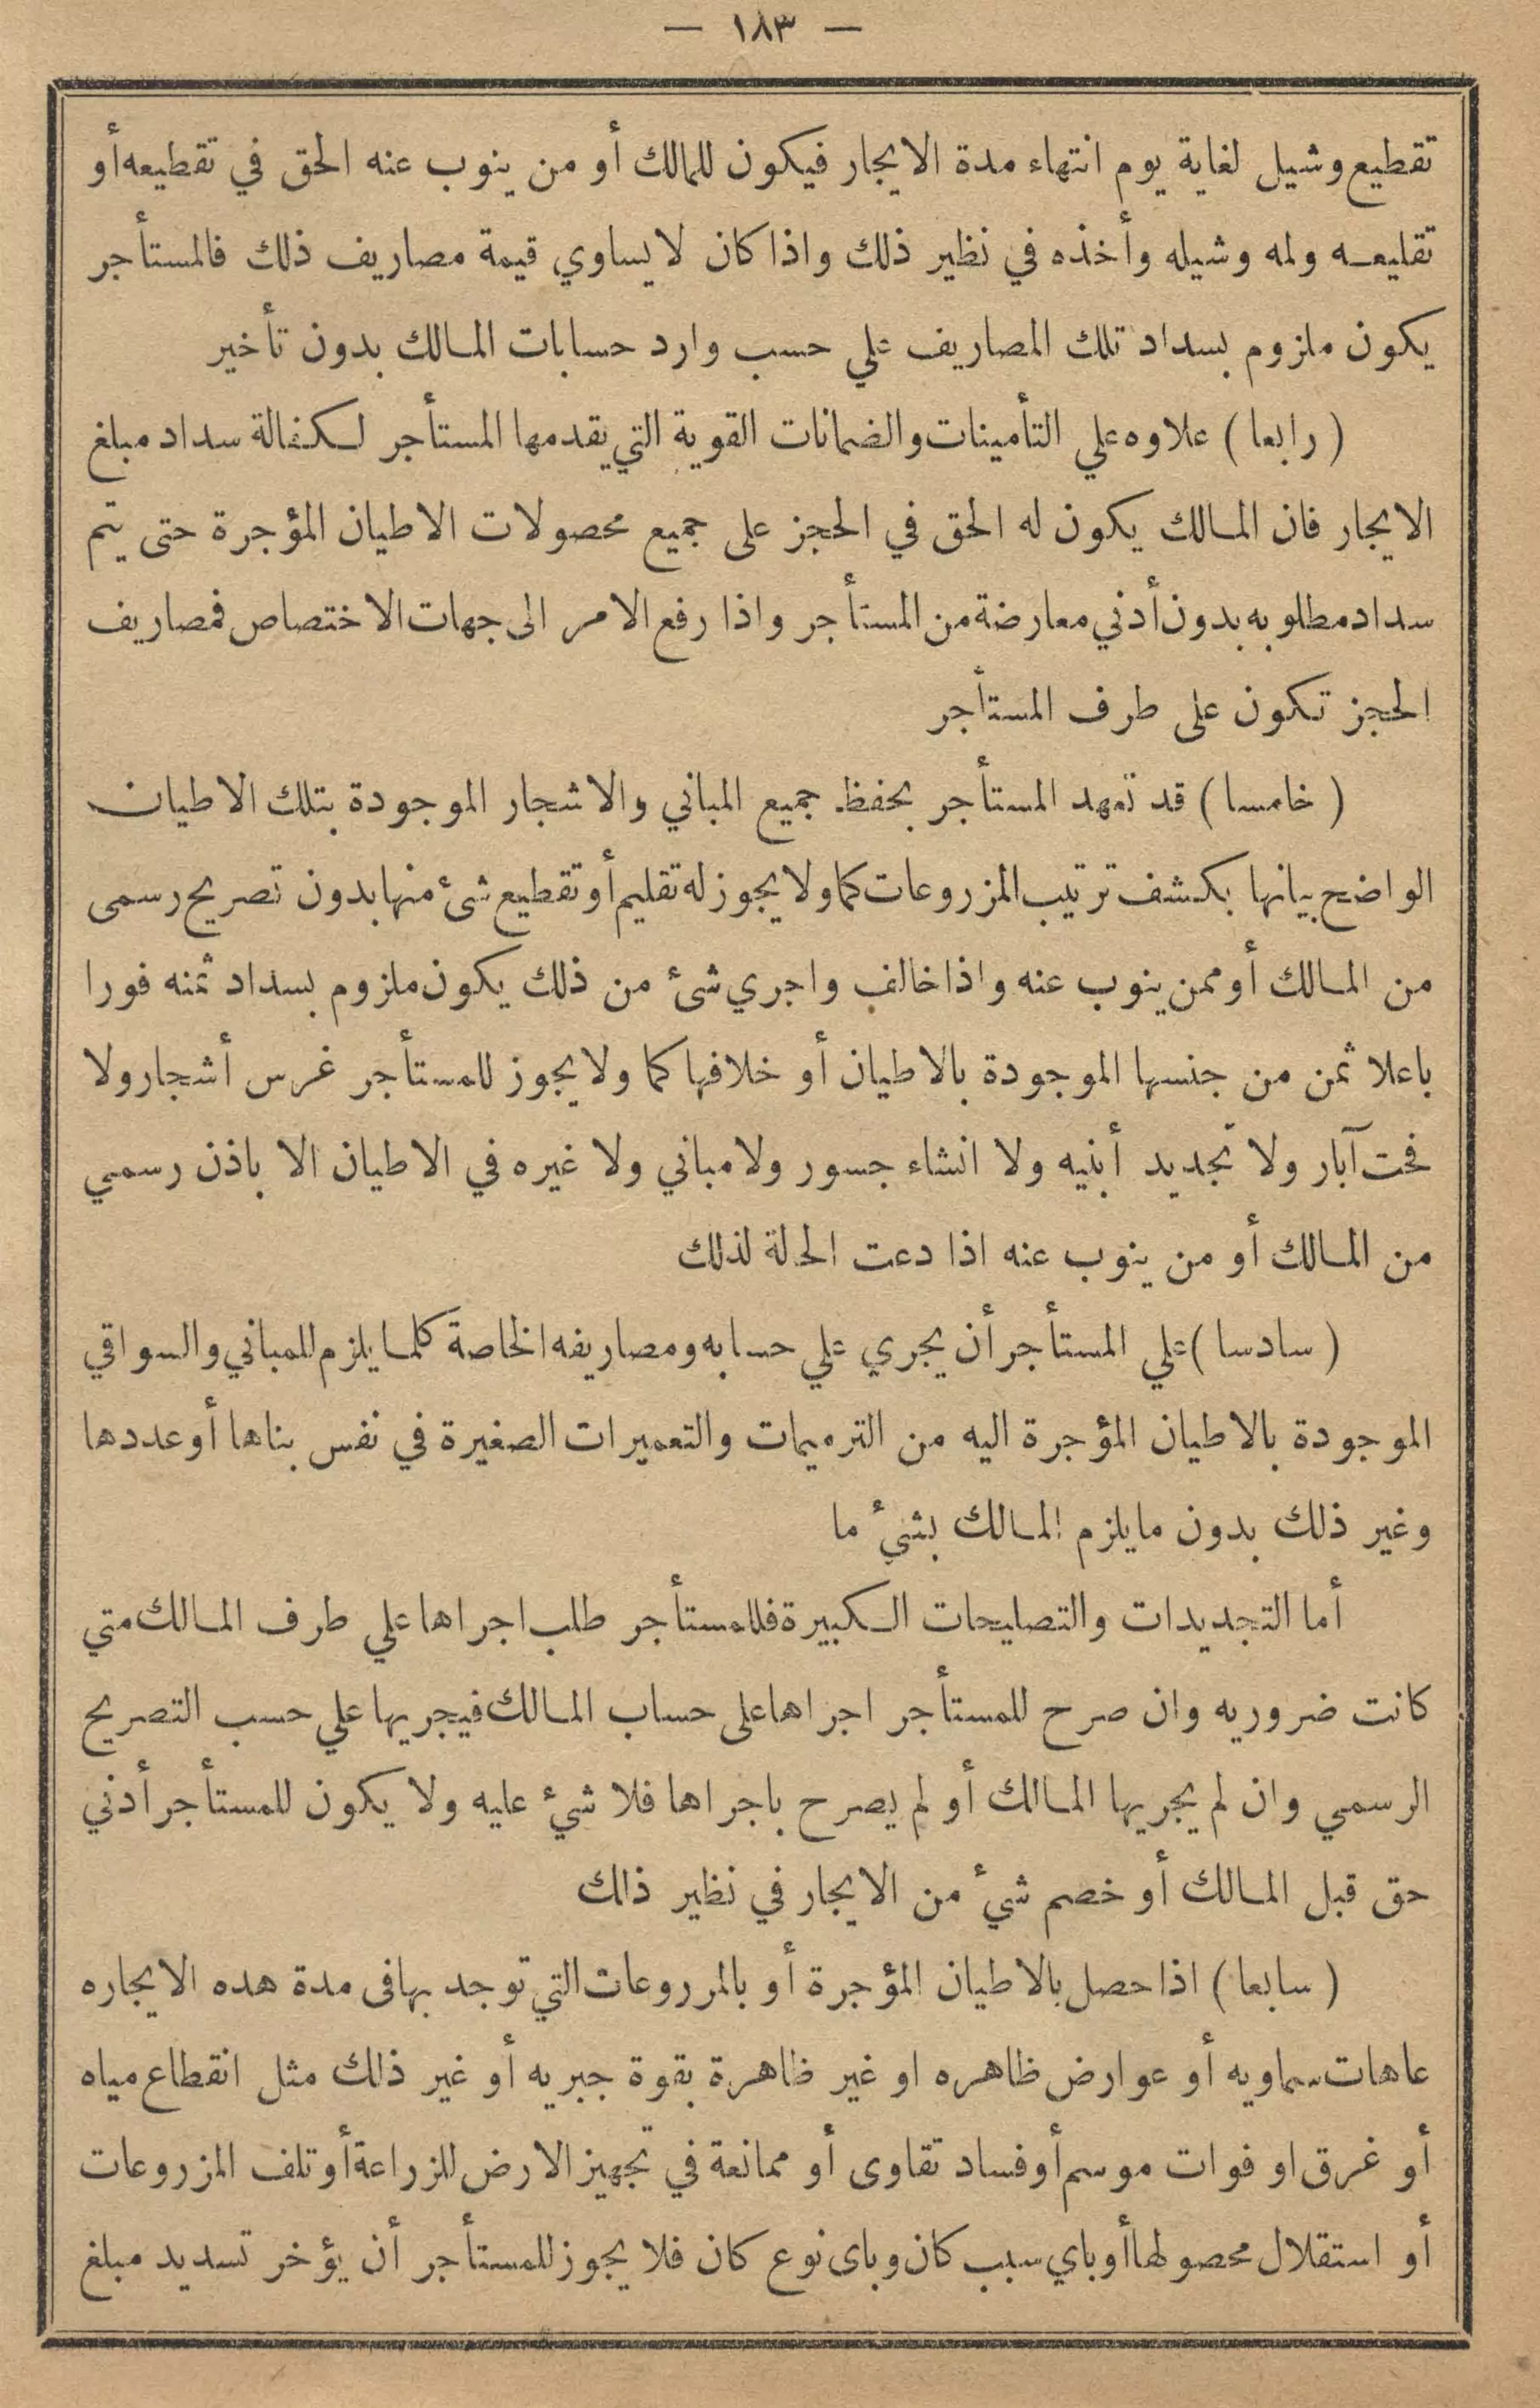 — ١٨٣ —
تقطيع وشيل لغاية يوم انتهاء مدة الايجار فيكون للمالك أو من ينوب عنه الحق في تقطيعه أو
تقليعه ولمه وشيله وأخذه في نظير ذلك واذا كان لا يساوي قيمة مصاريف ذلك فالمستأجر
يكون ملزوم بسداد تلك المصاريف علي حسب وارد حسابات المالك بدون تأخير
( رابعا ) علاوه علي التأمينات والضمانات القوية التي يقدمها المستأجر لكفالة سداد مبلغ
الايجار فان المالك يكون له الحق في الحجز على جميع محصولات الاطيان المؤجرة حتى يتم
سداد مطلوبه بدون أدني معارضة من المستأجر واذا رفع الامر الى جهات الاختصاص فمصاريف
الحجز تكون على طرف المستأجر
( خامسا ) قد تعهد المستأجر بحفظ جميع المباني والاشجار الموجودة بتلك الاطيان
الواضح بيانها بكشف ترتيب المزروعات كما ولا يجوز له تقليم أو تقطيع شئ منها بدون تصريح رسمى
من المالك أو ممن ينوب عنه واذا خالف واجري شئ من ذلك يكون ملزوم بسداد ثمنه فورا
باعلا ثمن من جنسها الموجودة بالاطيان أو خلافها كما ولا يجوز للمستأجر غرس أشجار ولا
فحت آبار ولا تجديد أبنيه ولا انشاء جسور ولا مباني ولا غيره في الاطيان الا باذن رسمي
من المالك أو من ينوب عنه اذا دعت الحالة لذلك
( سادسا ) علي المستأجر أن يجري علي حسابه ومصاريفه الخاصة كلما يلزم للمباني والسواقي
الموجودة بالاطيان المؤجرة اليه من الترميمات والتعميرات الصغيرة في نفس بناها أو عددها
وغير ذلك بدون ما يلزم المالك بشيء ما
أما التجديدات والتصليحات الكبيرة فللمستأجر طلب اجراها علي طرف المالك متي
كانت ضروريه وان صرح للمستأجر اجراها على حساب المالك فيجريها علي حسب التصريح
الرسمي وان لم يجريها المالك أو لم يصرح باجراها فلا شيء عليه ولا يكون للمستأجر أدني
حق قبل المالك أو خصم شيء من الايجار في نظير ذلك
( سابعا ) اذا حصل بالاطيان المؤجرة أو بالمرروعات التي توجد بها فى مدة هده الايجاره
عاهات سماويه أو عوارض ظاهره او غير ظاهرة بقوة جبريه أو غير ذلك مثل انقطاع مياه
أو غرق او فوات موسم أو فساد تقاوى أو ممانعة في تجهيز الارض للزراعة أو تلف المزروعات
أو استقلال محصولها أو باي سبب كان وباى نوع كان فلا يجوز للمستأجر أن يؤخر تسديد مبلغ